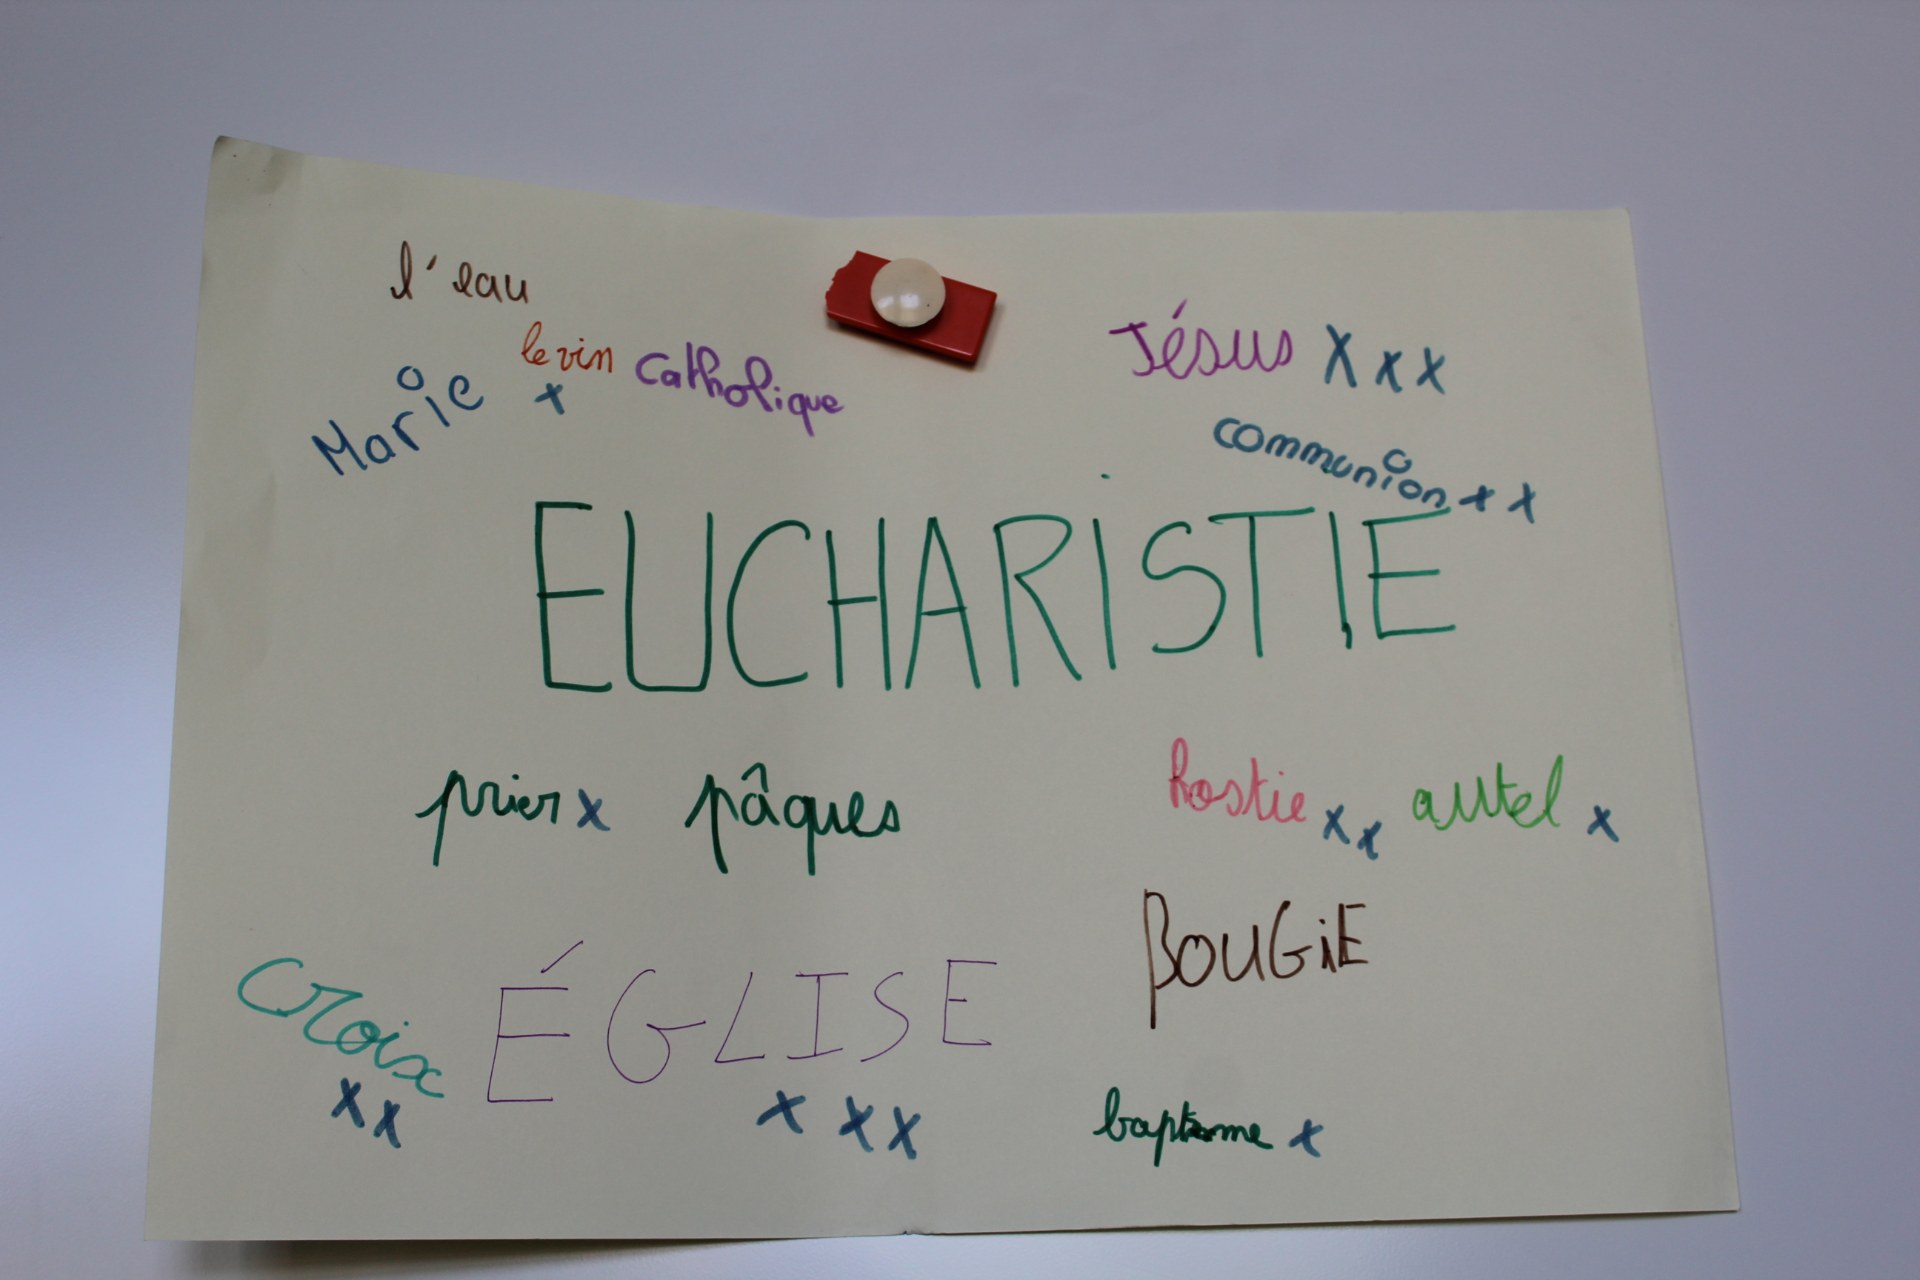 l'eau
le vin x catholique
Marie
Jésus X x x
communion x x
EUCHARISTIE
prier x pâques
hostie x x autel x
BOUGiE
croix x x
ÉGLISE x x x
bapteme x